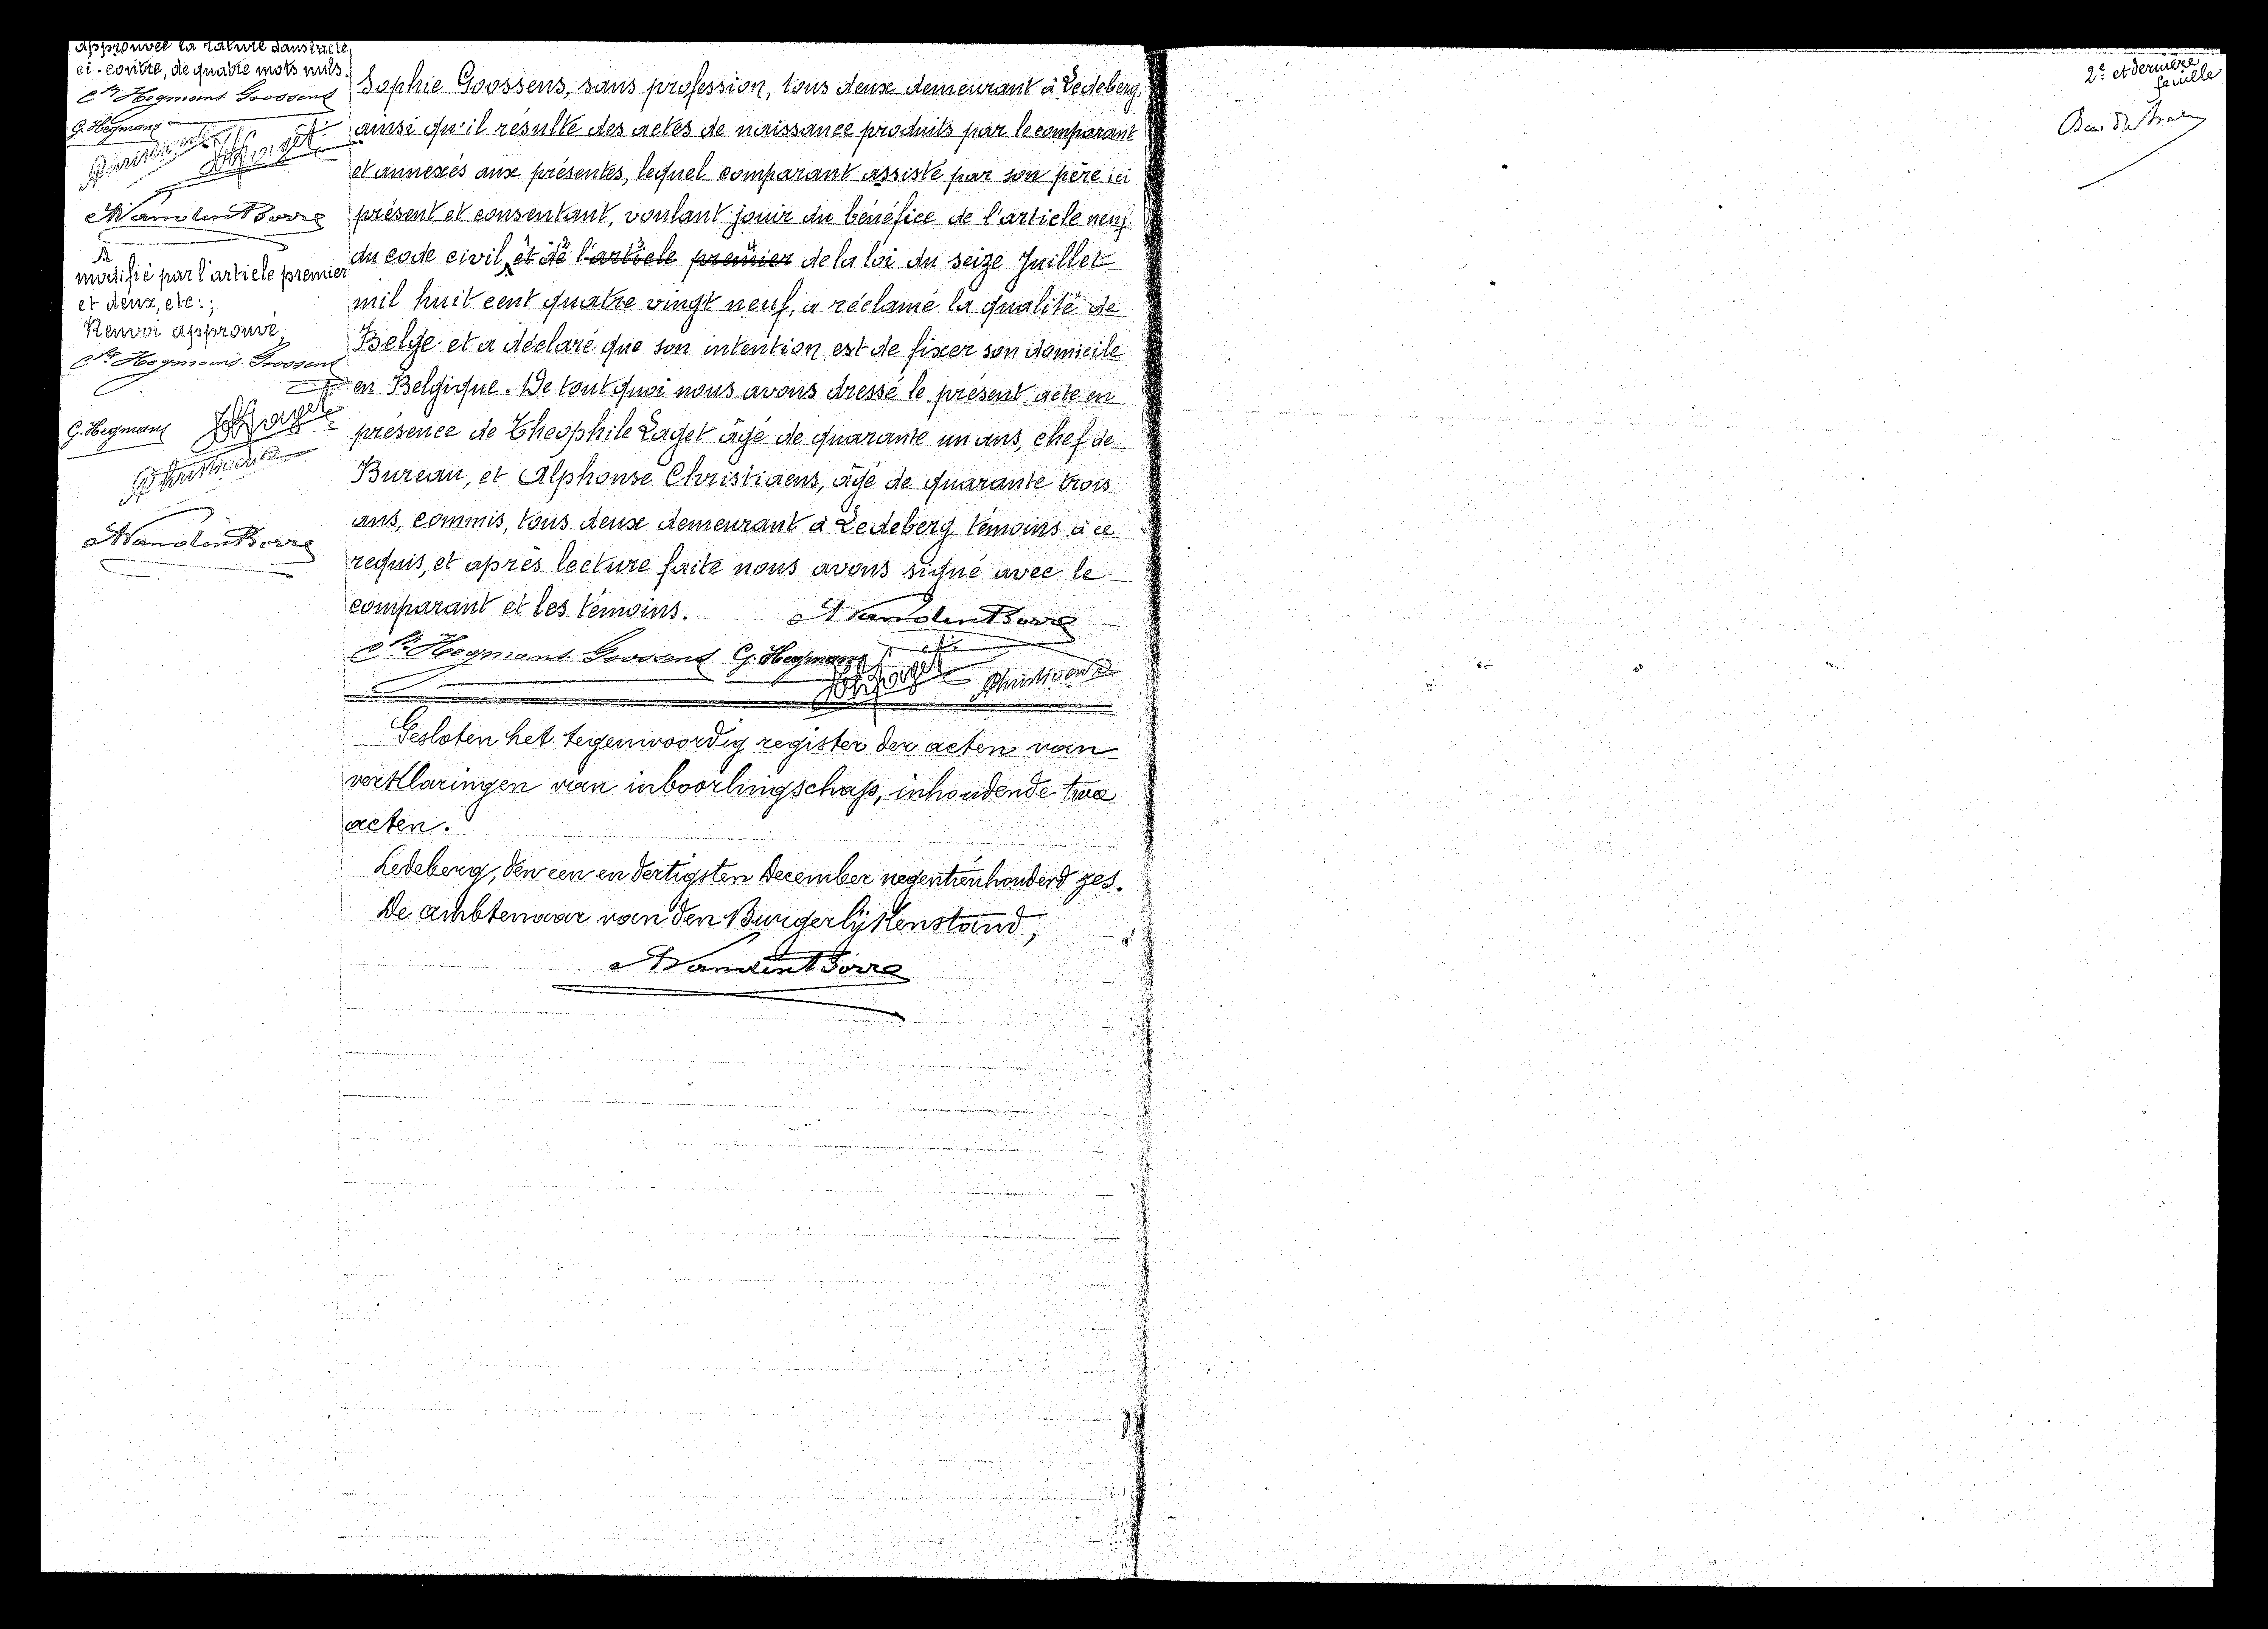 approuvée la rature dans l'acte
ci-contre, de quatre mots nuls.
Hegmans Goossens
G. Hegmans
AChristiaens
Laget
AVandenBorre
modifié par l'article premier
et deux, etc:;
Renvoi approuvé,
Hegmans Goossens
G. Hegmans
Laget
AChristiaens
AVandenBorre
Sophie Goossens, sans profession, tous deux demeurant à Ledeberg,
ainsi qu'il résulte des actes de naissance produits par le comparant
et annexés aux présentes, lequel comparant assisté par son père ici
présent et consentant, voulant jouir du bénéfice de l'article neuf
du code civil, et de l'article premier de la loi du seize Juillet
mil huit cent quatre vingt neuf, a réclamé la qualité de
Belge et a déclaré que son intention est de fixer son domicile
en Belgique. De tout quoi nous avons dressé le présent acte en
présence de Théophile Laget âgé de quarante un ans, chef de
Bureau, et Alphonse Christiaens, âgé de quarante trois
ans, commis, tous deux demeurant à Ledeberg témoins à ce
requis, et après lecture faite nous avons signé avec le
comparant et les témoins.
AVandenBorre
Hegmans Goossens G. Hegmans
Laget AChristiaens
Gesloten het tegenwoordig register der acten van
verklaringen van inboorlingschap, inhoudende twee
acten.
Ledeberg, den een en dertigsten December negentienhonderd zes.
De ambtenaar van den Burgerlijkenstand,
AVandenBorre
2e et dernière
feuille